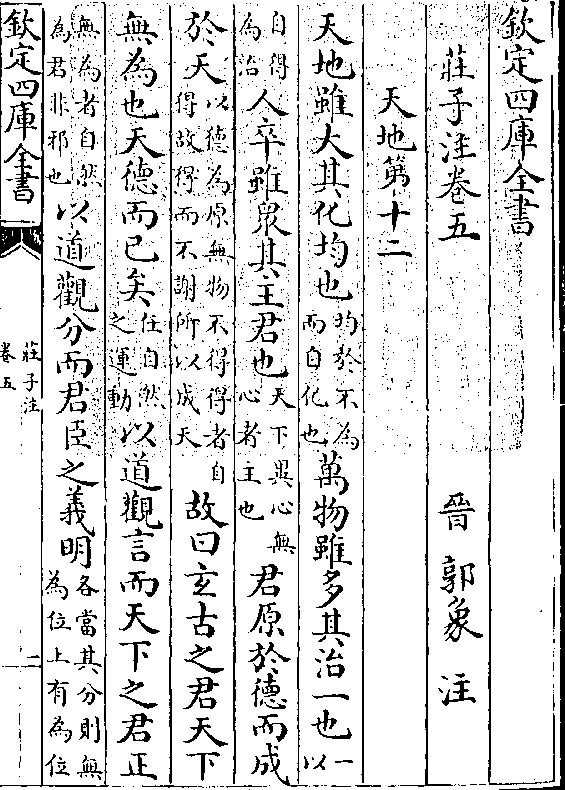 欽定四庫全書
莊子注卷五 晉 郭象 注
天地第十二
天地雖大其化均也均於不為而自化也萬物雖多其治一也一以
自得為治人卒雖衆其主君也天下異心無心者主也君原於德而成
於天以德為原無物不得得者自得故得而不謝所以成天故曰玄古之君天下
無為也天德而已矣任自然之運動以道觀言而天下之君正
無為者自然為君非邪也以道觀分而君臣之義明各當其分則無為位上有為位
欽定四庫全書
莊子注
卷五
二